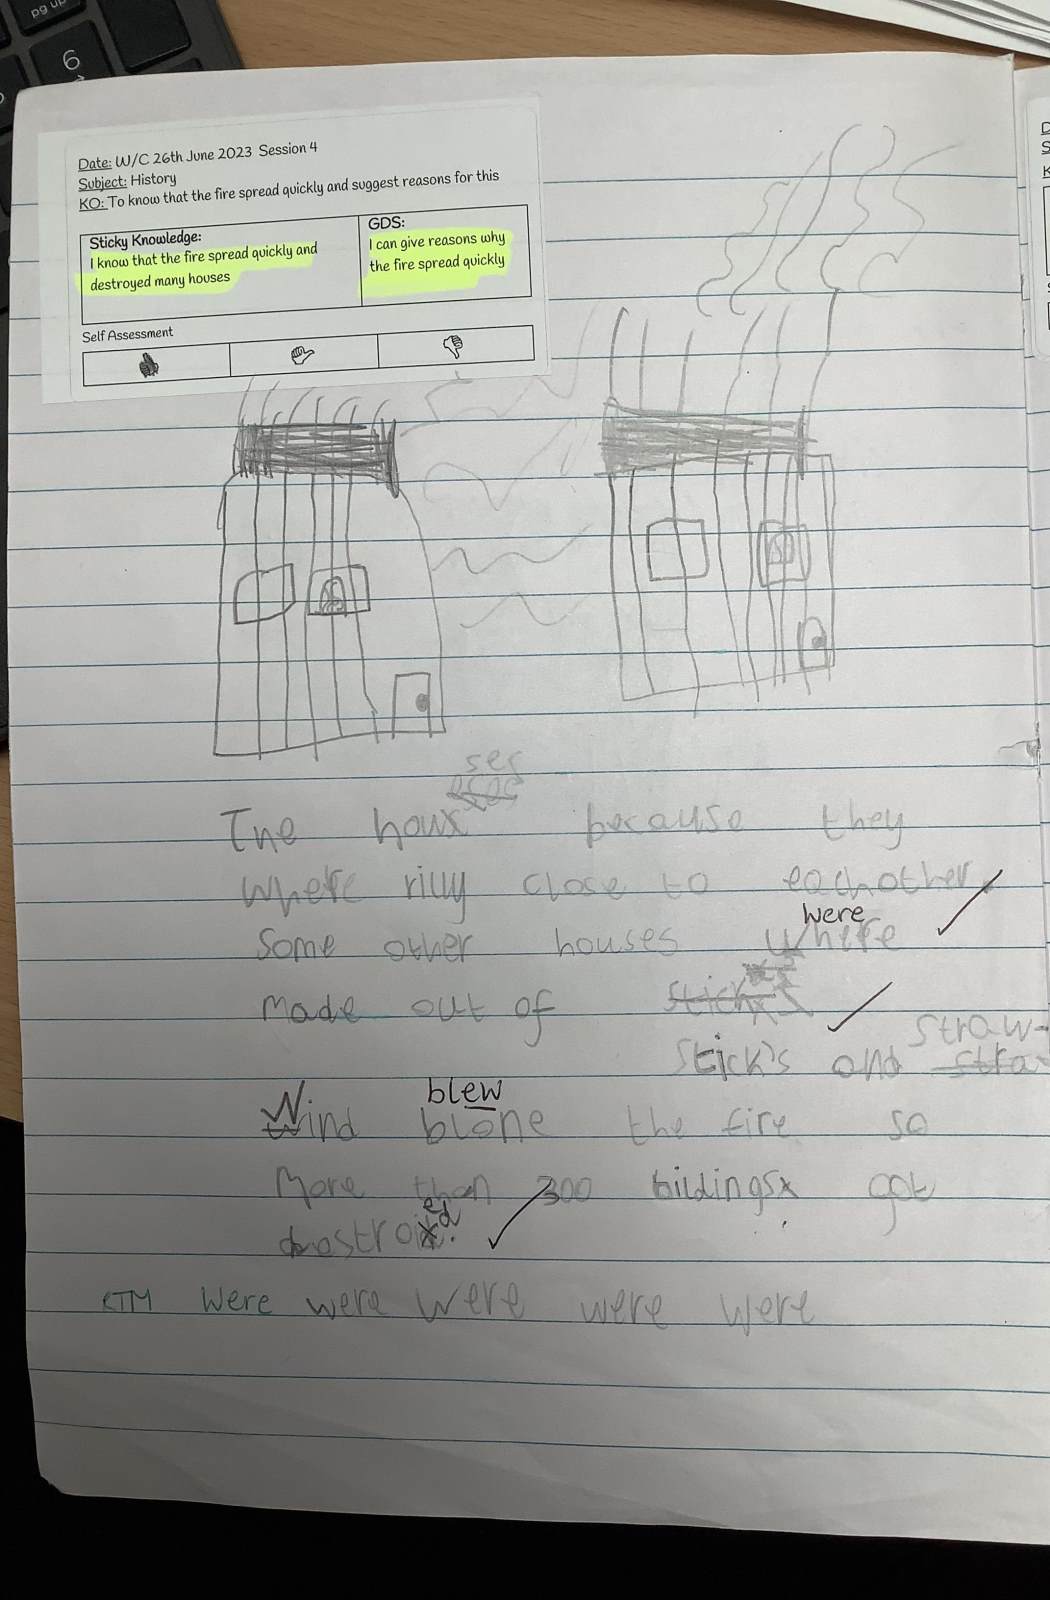 pg up
6
Date: W/C 26th June 2023 Session 4
Subject: History
KO: To know that the fire spread quickly and suggest reasons for this
Sticky Knowledge:
I know that the fire spread quickly and
destroyed many houses
GDS:
I can give reasons why
the fire spread quickly
Self Assessment
ses
The hous because they
where rilly close to eachother.
were
Some other houses where
made out of sticks
straw
stick's and stra
blew
Wind blone the fire so
More than 300 bildings got
destroied.
RTM were were were were were